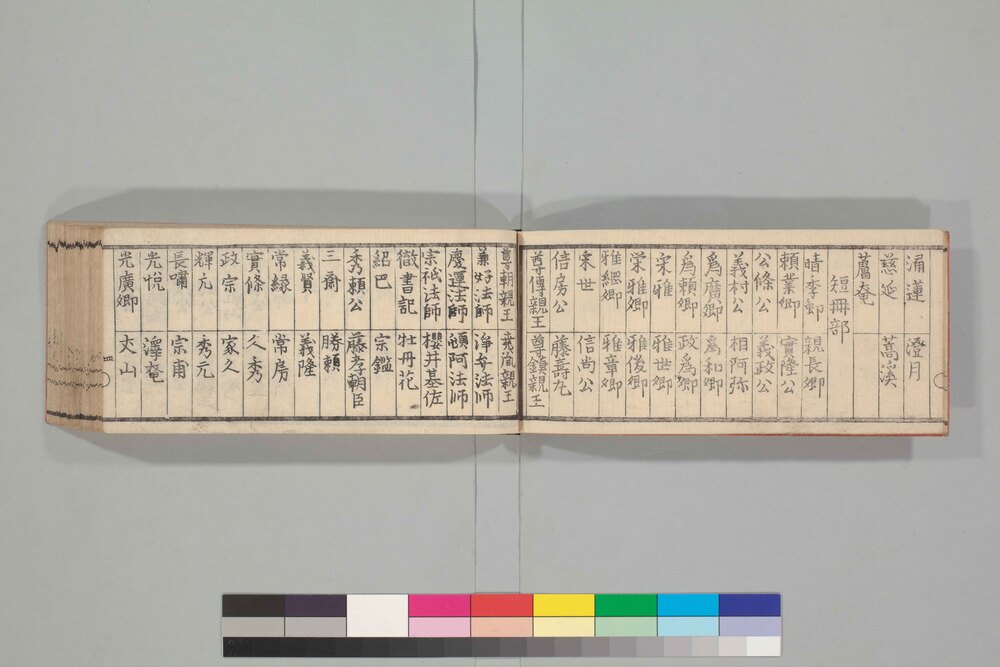 涌蓮　澄月
慈延　蒿溪
蘆庵
短冊部
晴季卿　親長卿
頼業卿　實隆公
公條公　義政公
義村公　相阿弥
為廣卿　為和卿
為頼卿　政為卿
宋雅　雅世卿
栄雅卿　雅俊卿
雅綱卿　雅章卿
宋世　信尚公
信房公　藤壽丸
尊傳親王　尊鎮親王
尊朝親王　親王
兼好法師　浄弁法师
慶運法師　頓阿法师
宗祇法師　櫻井基佐
徹書記　牡丹花
紹巴　宗鑑
秀頼公　藤孝朝臣
三齋　勝頼
義賢　義隆
常縁　常房
實條　久秀
政宗　家久
輝元　秀元
長嘯　宗甫
光悦　澤庵
光廣卿　丈山